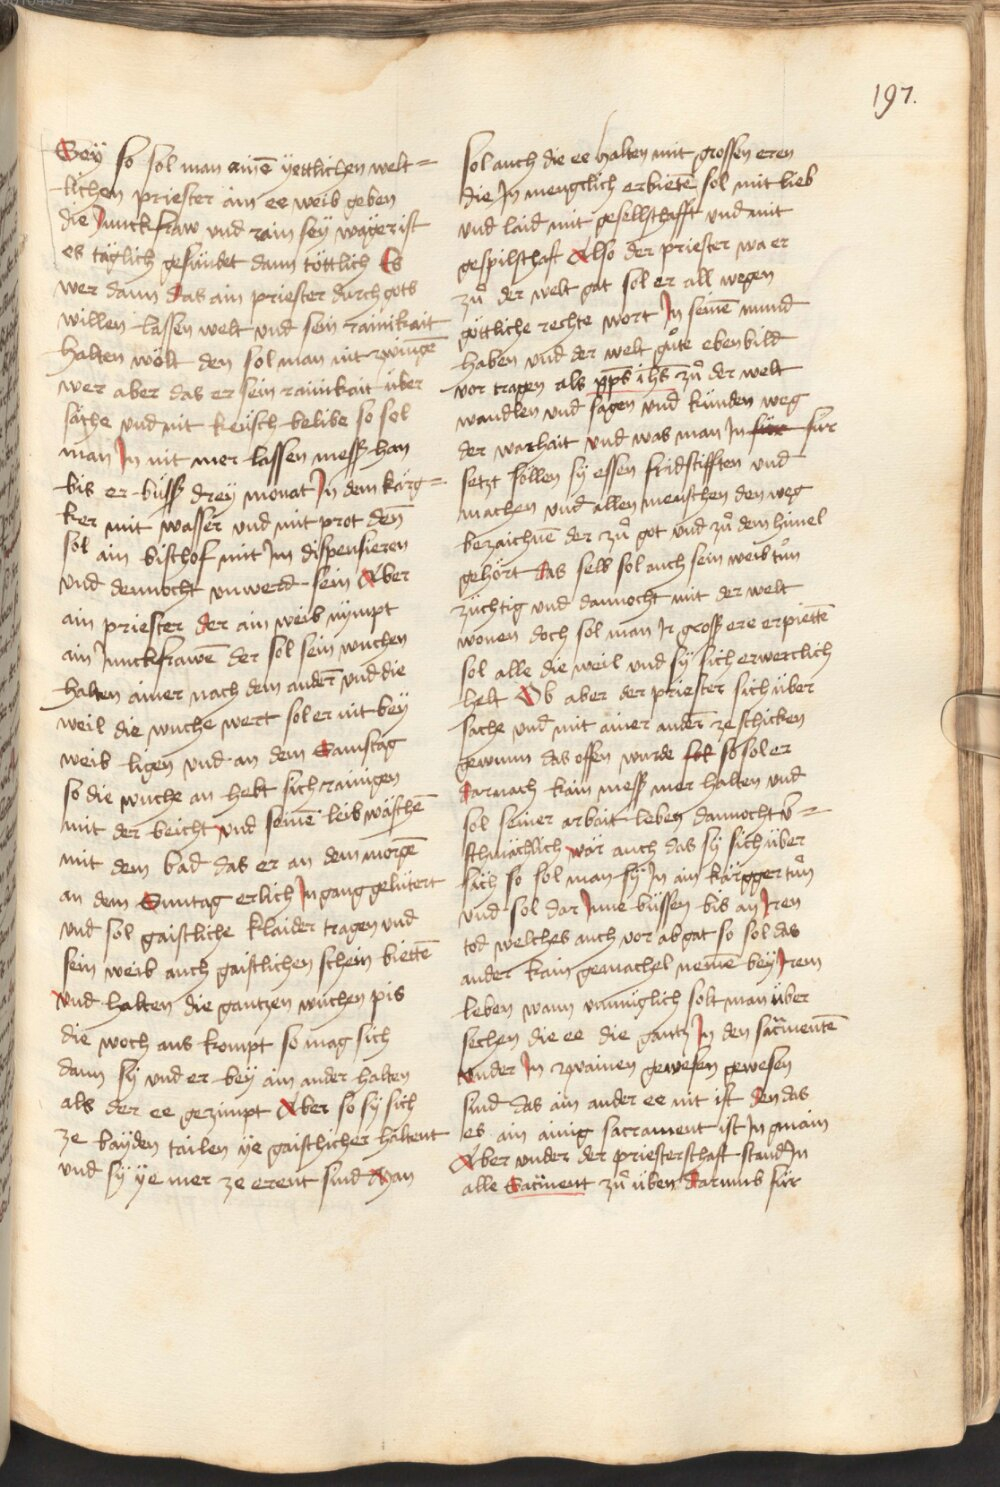 197.
Sey so sol man ainē yettlichen welt=
lichen priester ain ee weib geben
die Junckfraw und rain sey wäger ist
es täglich gesündet dann töttlich Es
wer dann das ain priester durch gots
willen lassen welt und sein rainikait
halten wölt den sol man nit zwingē
wer aber das er sein rainikait über
säche und nit keüsch belibe so sol
man In nit mer lassen mess han
bis er büss drey monat In dem kärg=
ker mit wasser und mit prot deñ
sol ain bischof mit Im dispensieren
und dennocht unwerd sein Aber
ain priester der ain weib nympt
ain Junckfrawē der sol sein wuchen
halten ainer nach dem andern und die
weil die wuche wert sol er nit bey
weib ligen und an dem Samstag
so die wuche an hebt sich rainigen
mit der beicht und seinē leib wäschē
mit dem bad das er an dem morgē
an dem Suntag erlich In gang gelütert
und sol gaistliche klaider tragen und
sein weib auch gaistlichen schein biettē
und halten die gantzen wuchen pis
die woch aus kompt so mag sich
dann sy und er bey ain ander halten
als der ee gezimpt Aber so sy sich
ze bayden tailen ye gaistlicher haltent
und sy ye mer ze erent sind Man
sol auch die ee halten mit grossen eren
die In mengclich erbietē sol mit lieb
und laid mit gesellschafft und mit
gespilschaft Also der priester wa er
zů der welt gat sol er all wegen
göttliche rechte wort In seinē mund
haben und der welt gůte ebenbild
vor tragen als xp̄s ih̄s zů der welt
wandlen und sagen und künden weg
der warhait und was man In für für
setzt söllen sy essen fridstifften und
machen und allen menschen den weg
bezaichnē der zů got und zů dem himel
gehört das selb sol auch sein weib tůn
züchtig und dannocht mit der welt
wonen doch sol man Ir gross ere erpiettē
sol alle die weil und sy sich erwerclich
helt Ob aber der priester sich über
sache und mit ainer andern ze schicken
gewunn das offen wurde so sol er
darnach kain mess mer halten und
sol seiner arbait leben dannocht v=
schmächlich wär auch das sy sich über
säch so sol man sy In ain kärgger tůn
und sol dar Inne büssen bis an Iren
tod welches auch vor abgat so sol das
ander kain gemachel nemē bey Irem
leben wann unmüglich solt man über
sechen die ee die gantz In den sacramentē
under In zwainen gewesen gewesen
sind das ain ander ee nit ist den das
es ain ainig sacrament ist In gmain
Aber under der priesterschaft stand In
alle Sacrament zů üben Darumb für